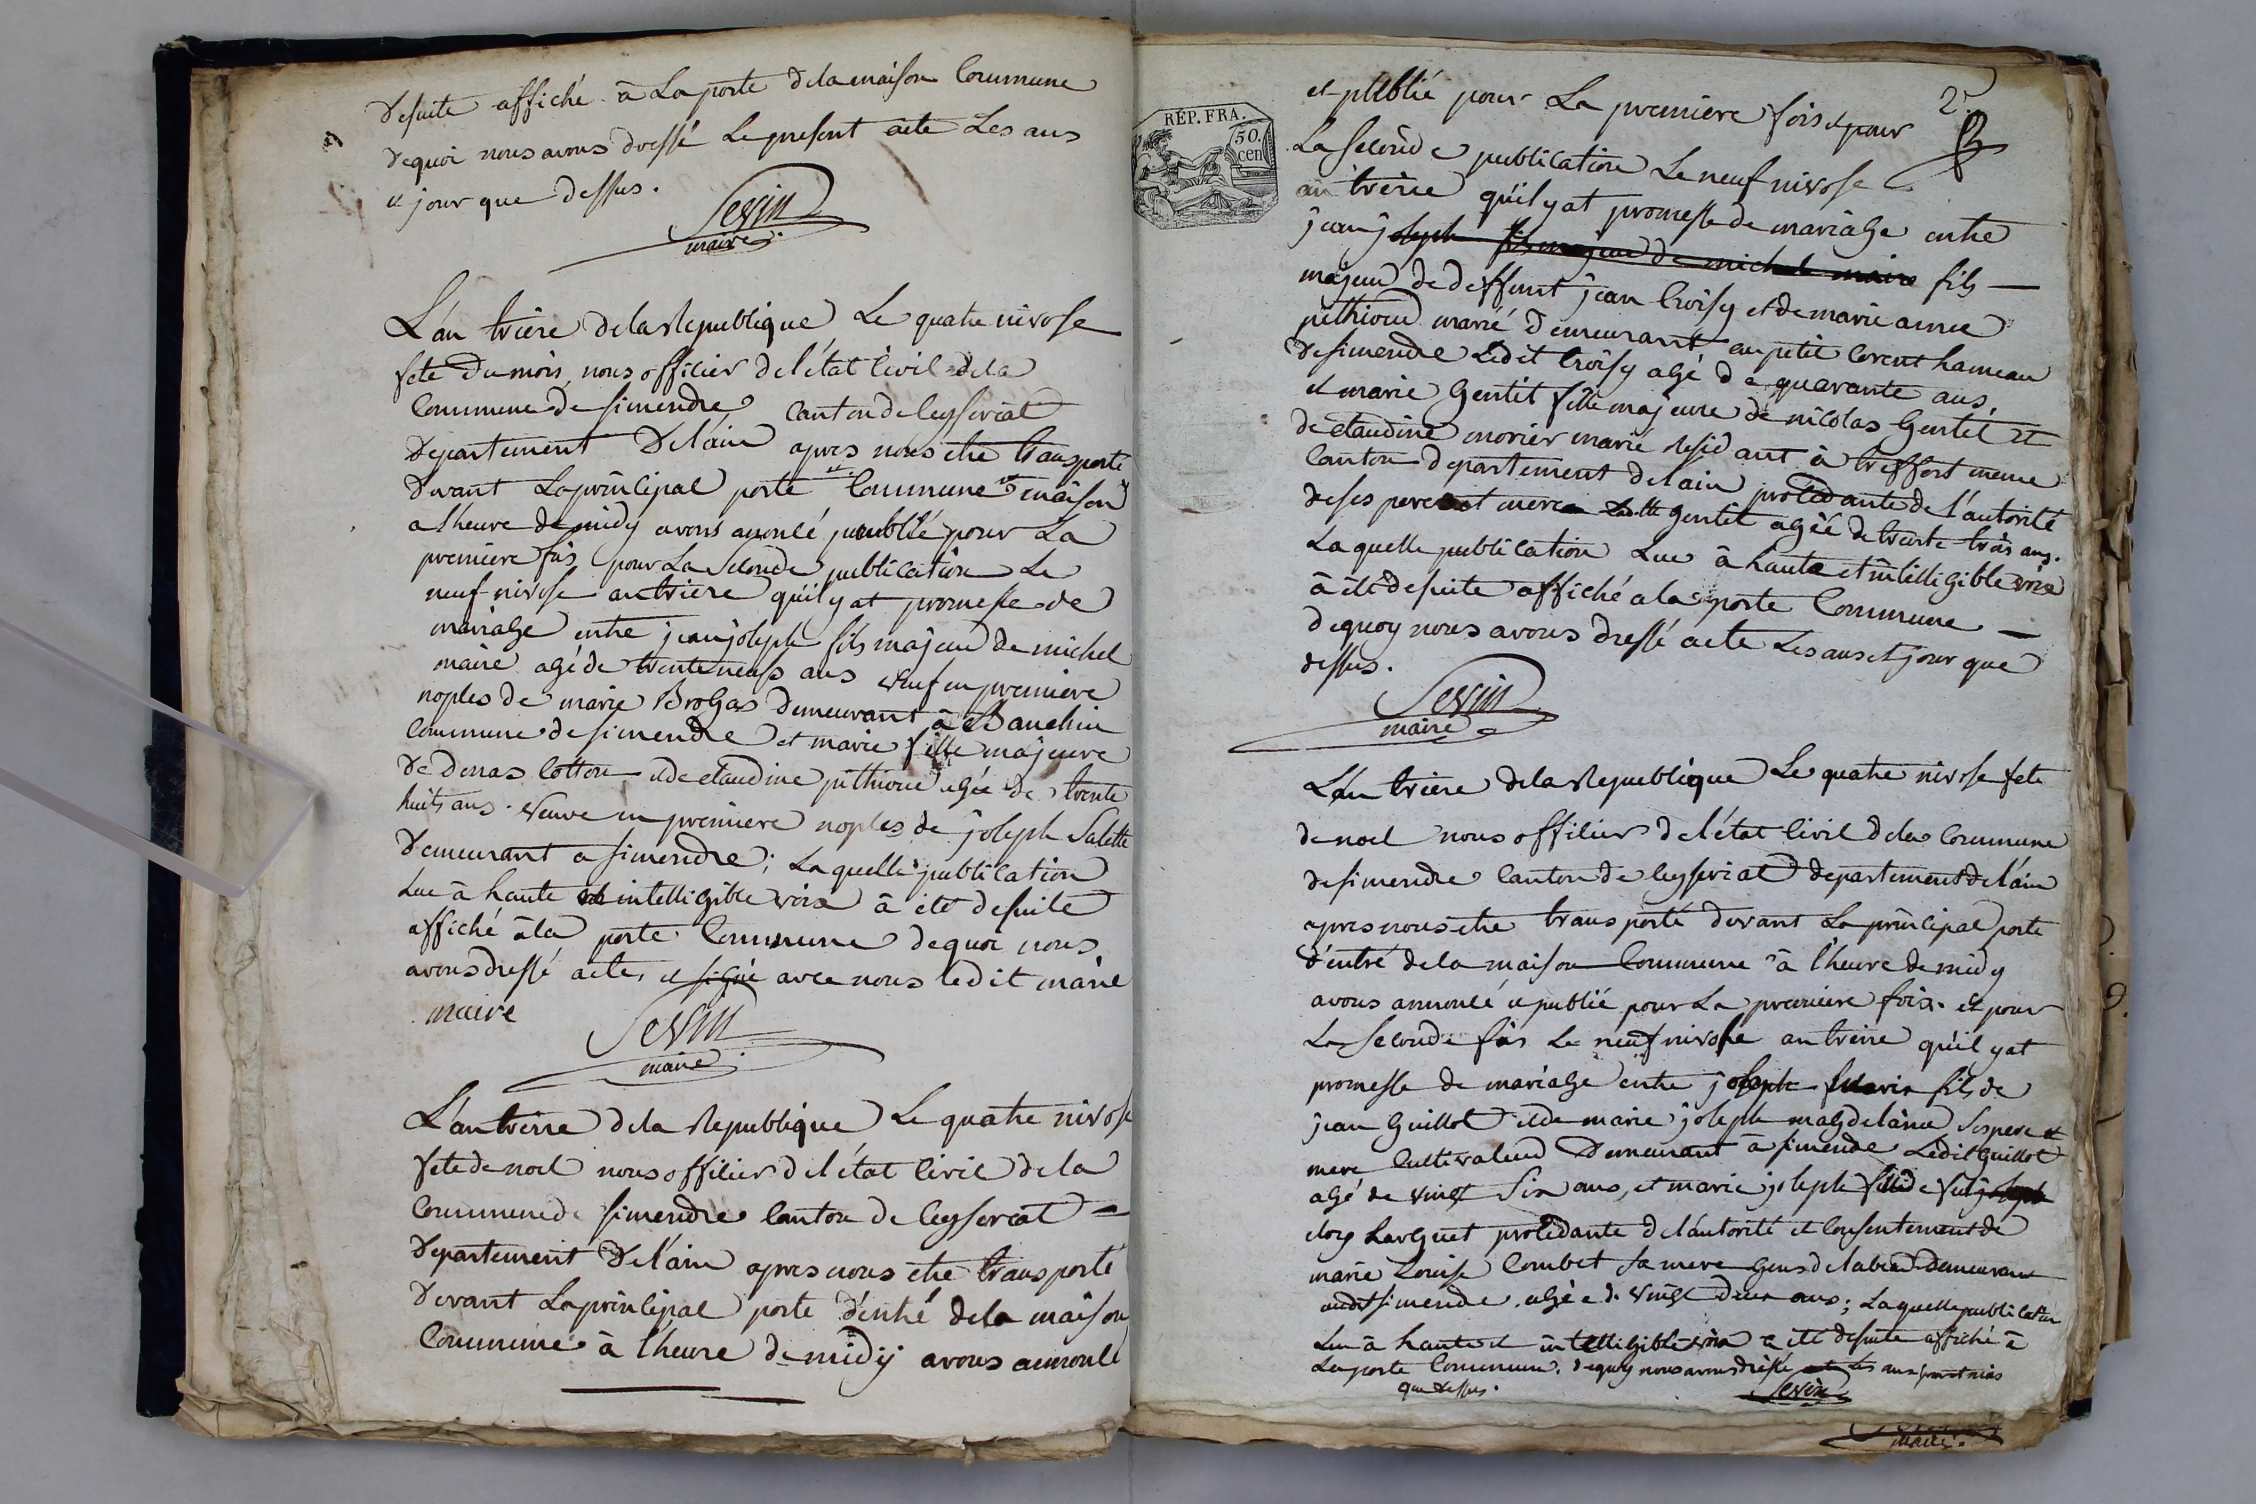 desuite affiché à La porte dela maison Commune
dequoi nous avons dressé Le present acte Les ans
et jour que dessus.
Sevin
maire
L'an trèire dela Republique Le quatre nivose
fete du mois, nous officier del'état Civil dela
Commune de simendre Canton de Ceyseriat
departement Delain apres nous etre transporté
devant La principal porte Commune maison
a l'heure de midy avons anoncé publié pour La
premiere fois pour La seconde publication Le
neuf nivose an treire quil y at promesse de
mariage entre jean joseph fils majeur de michel
maire agé de trente neuf ans veuf en premiere
noples de marie Brogas demeurant à Banchin
Commune de simendre et marie fille majeure
de denas Cotton et de claudine pithioud agée de trente
huits ans. veuve en premiere noples de joseph Salette
demeurant a simendre; La quelle publication
Lue à haute et intelligible voix à été desuite
affiché à la porte Commune dequoi nous
avons dressé acte, et signé avec nous ledit marie
maire
Sevin
maire
L'an treire dela Republique Le quatre nivose
fete de noel nous officier del'état Civil dela
Commune de simendre Canton de Ceyseriat
departement Delain apres nous etre transporté
devant La principal porte d'entré dela maison
Commune à l'heure de midy avons annoncé
2
RÉP. FRA.
50.
cen
et publié pour La premiere fois et pour
La seconde publication Le neuf nivose
an treire quil y at promesse de mariage entre
jean joseph fils majeur de michel maire fils
majeur de deffunt jean Croisy et de marie anne
pithioud marié demeurant au petit Corent hameau
de simendre Ledit Croisy agé de quarante ans,
et marie Gentit fille majeure de nicolas Gentil et
de claudine morier marié residant à treffort meme
Canton departement delain procédante de l'autorité
de ses pere et mere Laditte gentit agée de trente trois ans.
La quelle publication Lue à haute et intelligible voix
à été desuite affiché a la porte Commune
dequoy nous avons dressé acte Les ans et jour que
dessus.
Sevin
maire
L'an treire dela Republique Le quatre nivose fete
de noel nous officier del'état Civil dela Commune
de simendre Canton de Ceyseriat departement delain
apres nous etre transporté devant La principal porte
d'entré dela maison Commune à l'heure de midy
avons annoncé et publié pour La premiere fois. et pour
La seconde fois Le neuf nivose an treire quil y at
promesse de mariage entre joseph marie fils de
jean Guillot et de marie joseph magdelaine ses pere et
mere Cultivateur demeurant à simendre Ledit Guillot
agé de vingt six ans, et marie joseph fille de feu joseph
eloy Larguet procédante del'autorité et Consentement de
marie Louise Combet sa mere demeurant
audit simendre, agée de vingt deux ans; La quelle publication
Lue à haute et intelligible voix a été desuite affiché à
La porte Commune, dequoy nous avons dressé acte les ans jour et mois
que dessus.
Sevin
maire